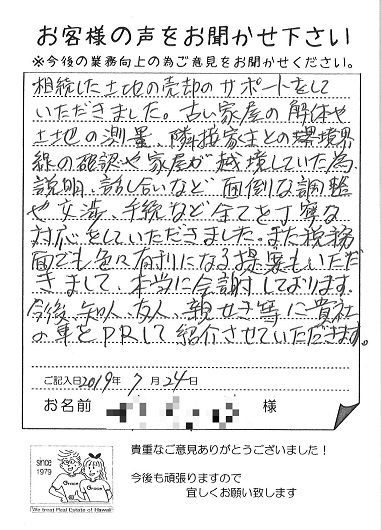 お客様の声をお聞かせ下さい
※今後の業務向上の為ご意見をお聞かせください。
相続した土地の売却のサポートをして
いただきました。古い家屋の解体や
土地の測量、隣接家主との境境界
線の確認や家屋が越境していた為、
説明、話し合いなど面倒な調整
や交渉、手続など全てを丁寧な
対応をしていただきました。また税務
面でも色々有利になる提案もいただ
きまして、本当に感謝しております。
今後、知人、友人、親せき等に貴社
の事をPRして紹介させていただきます。
ご記入日2019年7月24日
お名前 様
since
1979
Grace
Grace
We treat Real Estate of Hawaii
貴重なご意見ありがとうございました！
今後も頑張りますので
宜しくお願い致します